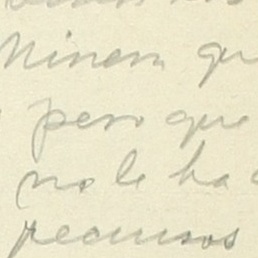 Ninen qu
pero que
no le ha
recursos